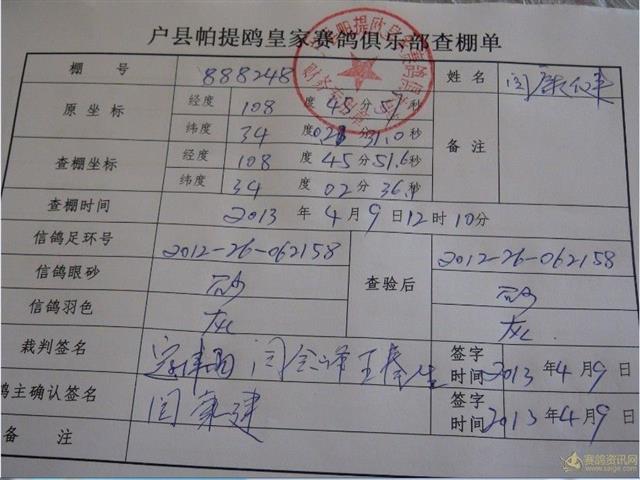 户县帕提鸥皇家赛鸽俱乐部查棚单
棚 号 888248 姓 名 闫
原 坐 标 经度 108 度 45 分 秒 备 注
纬度 34 度 02 分 31.0 秒
查棚坐标 经度 108 度 45 分 51.6 秒
纬度 34 度 02 分 36.1 秒
查棚时间 2013 年 4 月 9 日 12 时 10 分
信鸽足环号 2012-26-062158 查验后 2012-26-062158
信鸽眼砂 砂 砂
信鸽羽色 灰 灰
裁判签名 闫 王 签字时间 2013 年 4 月 9 日
鸽主确认签名 闫 建 签字时间 2013 年 4 月 9 日
备 注
赛鸽资讯网